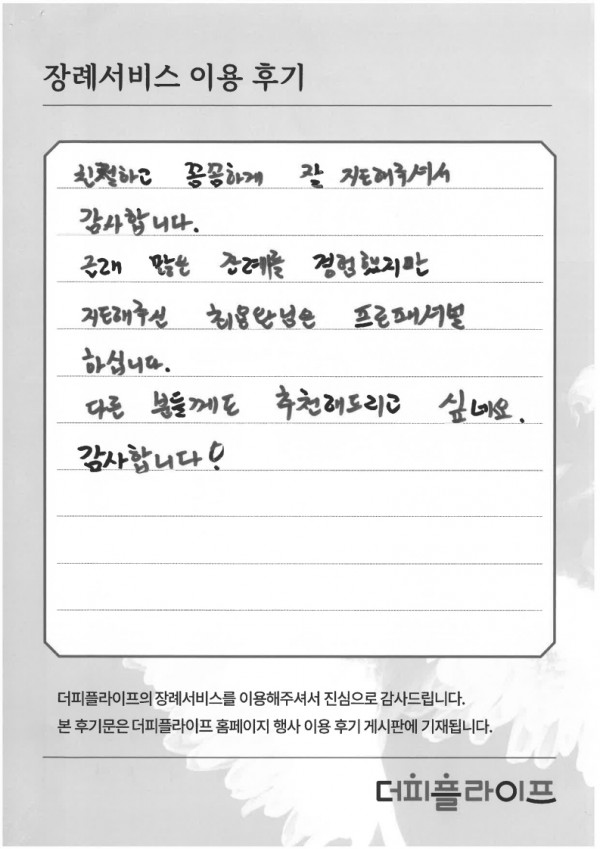 장례서비스 이용 후기
친절하고 꼼꼼하게 잘 지도해주셔서
감사합니다.
근래 많은 장례를 경험했지만
지도해주신 최용안님은 프로패셔널
하십니다.
다른 분들께도 추천해드리고 싶네요.
감사합니다!
더피플라이프의 장례서비스를 이용해주셔서 진심으로 감사드립니다.
본 후기문은 더피플라이프 홈페이지 행사 이용 후기 게시판에 기재됩니다.
더피플라이프